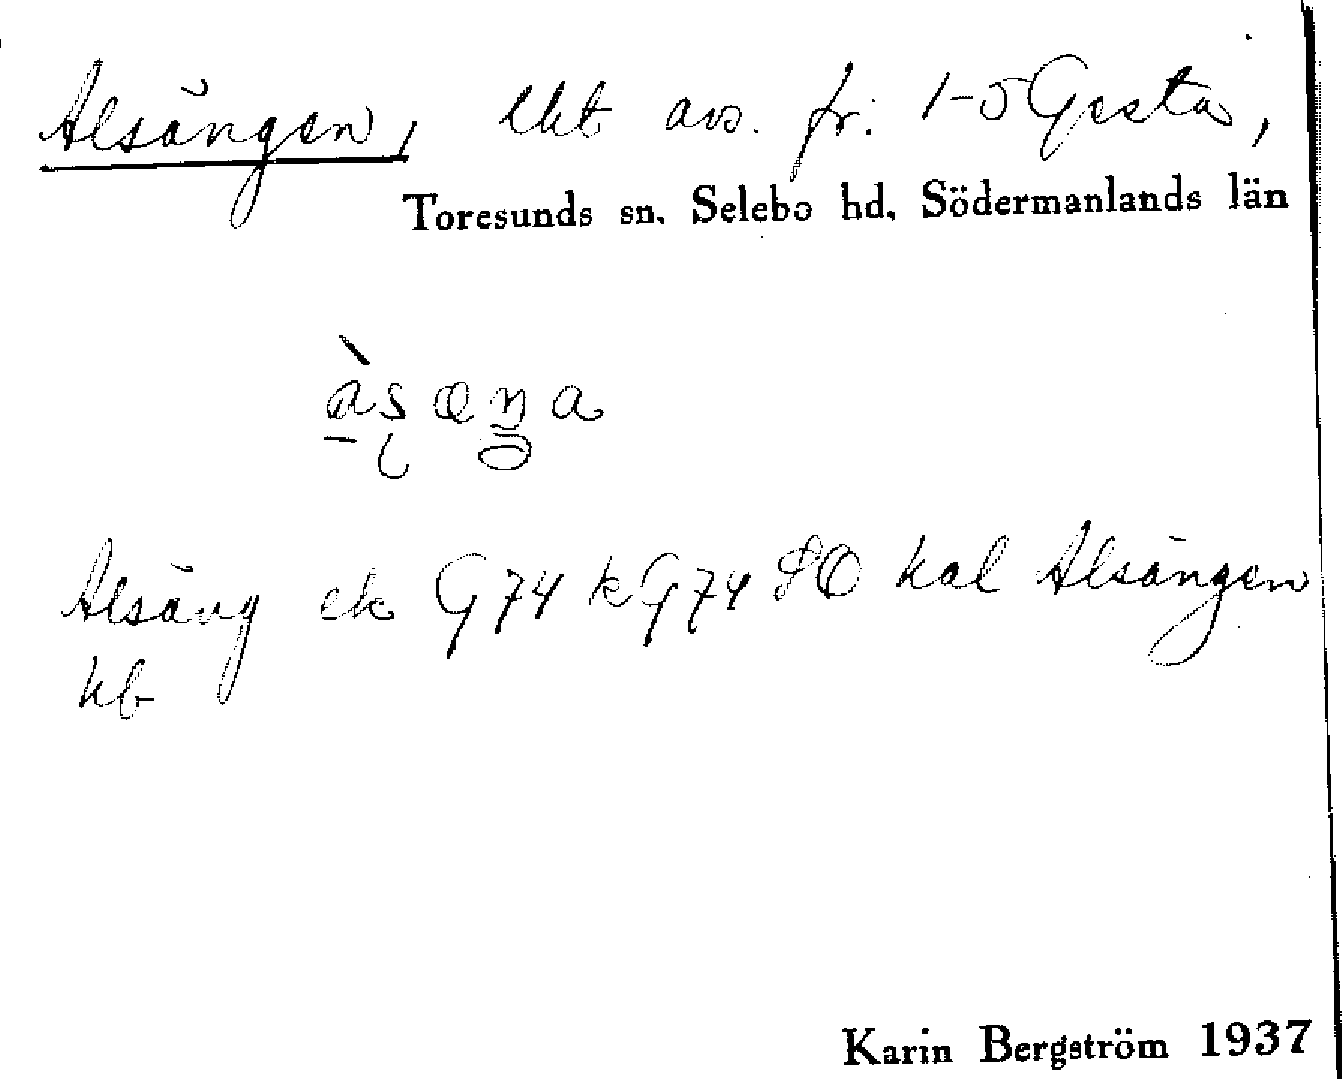 Alsängen, lht avs. fr. 1-5 Gesta,
Toresunds sn. Selebo hd. Södermanlands län
Alsäng ek G74 kG74 SO kal Alsängen
kb
Karin Bergström 1937